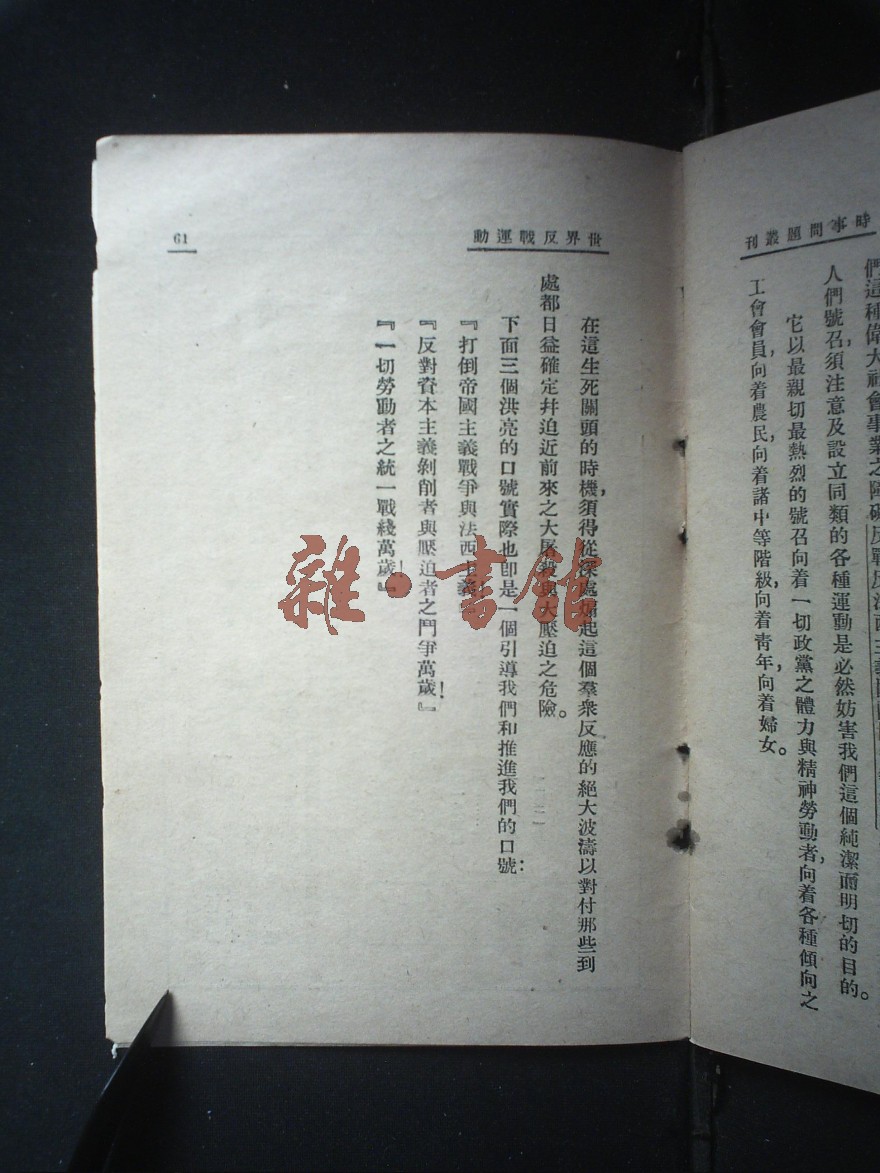 時事問題叢刊
們這種偉大社會事業之障礙反戰反法西主義
人們號召，須注意及設立同類的各種運動是必然妨害我們這個純潔而明切的目的。
它以最親切最熱烈的號召向着一切政黨之體力與精神勞動者，向着各種傾向之
工會會員，向着農民，向着諸中等階級，向着青年，向着婦女。
世界反戰運動
61
在這生死關頭的時機，須得從深處煽起這個羣衆反應的絕大波濤以對付那些到
處都日益確定幷迫近前來之大屠殺與大壓迫之危險。
下面三個洪亮的口號實際也卽是一個引導我們和推進我們的口號：
『打倒帝國主義戰爭與法西主義！』
『反對資本主義剝削者與壓迫者之鬥爭萬歲！』
『一切勞動者之統一戰綫萬歲！』
雜·書館